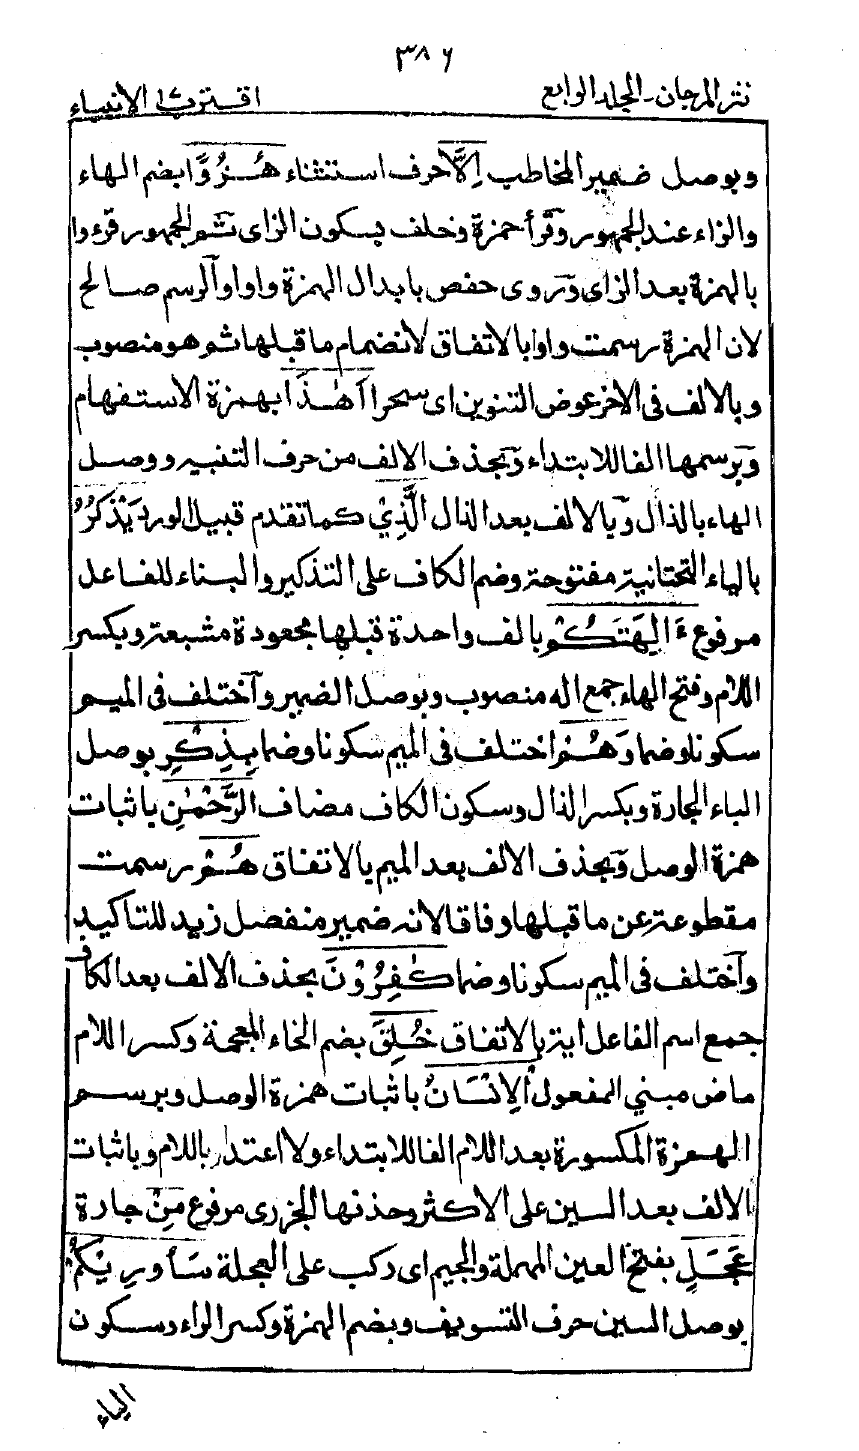 ٣٨٦
نثر المرجان - المجلد الرابع
اقترب ١٧ الانبياء
وبوصل ضمير المخاطب اِلَّا حرف استثناء هُزُوًا بضم الهاء
والزاء عند الجمهور وقرأ حمزة وخلف بسكون الزاى ثم الجمهور قرءوا
بالهمزة بعد الزاى وروى حفص بابدال الهمزة واوا والرسم صالح
لان الهمزة رسمت واوا بالاتفاق لانضمام ما قبلها ثم هو منصوب
وبالالف فى الاخر عوض التنوين اى سحرا اَهٰذَا بهمزة الاستفهام
وبرسمها الفا للابتداء وبحذف الالف من حرف التنبيه ووصل
الهاء بالذال وبالالف بعد الذال الَّذِيْ كما تقدم قبيل الورد يَذْكُرُ
بالياء التحتانية مفتوحة وضم الكاف على التذكير والبناء للفاعل
مرفوع ءَالِهَتَكُمْ بالف واحدة قبلها مجعودة مشبعة وبكسر
اللام وفتح الهاء جمع اله منصوب وبوصل الضمير واختلف فى الميم
سكونا وضما وَهُمْ اختلف فى الميم سكونا وضما بِذِكْرِ بوصل
الباء الجارة وبكسر الذال وسكون الكاف مضاف الرَّحْمٰنِ باثبات
همزة الوصل وبحذف الالف بعد الميم بالاتفاق هُمْ رسمت
مقطوعة عن ما قبلها وفاقا لانه ضمير منفصل زيد للتاكيد
واختلف فى الميم سكونا وضما كٰفِرُوْنَ بحذف الالف بعد الكاف
جمع اسم الفاعل اية بالاتفاق خُلِقَ بضم الخاء المعجمة وكسر اللام
ماض مبني المفعول الْاِنْسَانُ باثبات همزة الوصل وبرسم
الهمزة المكسورة بعد اللام الفا للابتداء ولا اعتداد باللام وباثبات
الالف بعد السين على الاكثر وحذفها الجزرى مرفوع مِنْ جارة
عَجَلٍ بفتح العين المهملة والجيم اى ركب على العجلة سَاُورِيْكُمْ
بوصل السين حرف التسويف وبضم الهمزة وكسر الراء وسكون
الياء